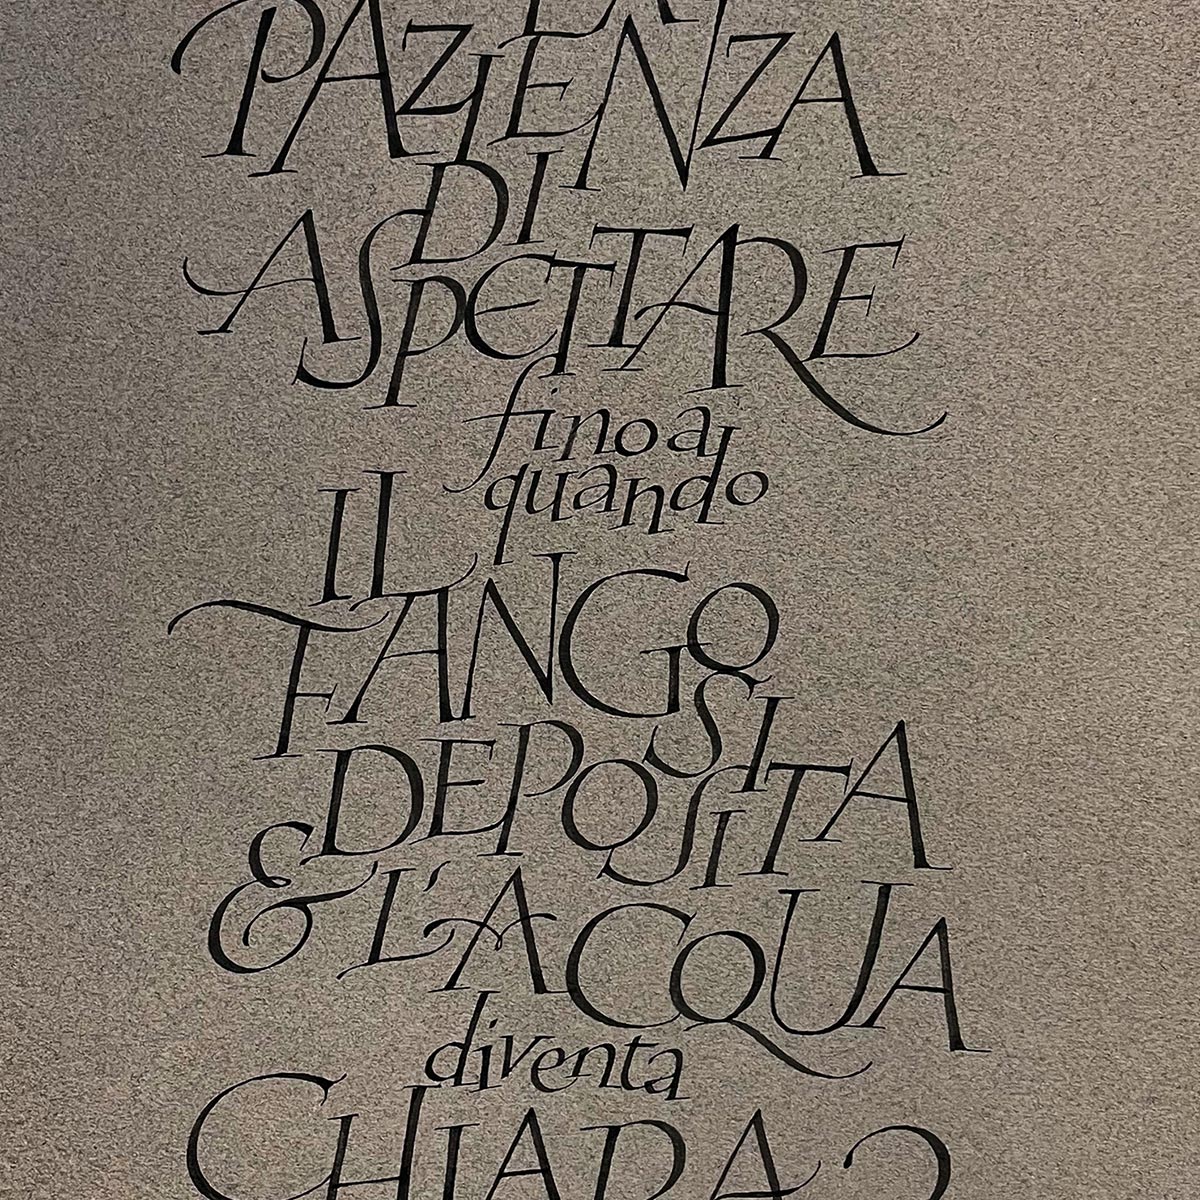 PAZIENZA
DI
ASPETTARE
fino a
quando
IL
FANGO SI
DEPOSITA
& L'ACQUA
diventa
CHIARA?